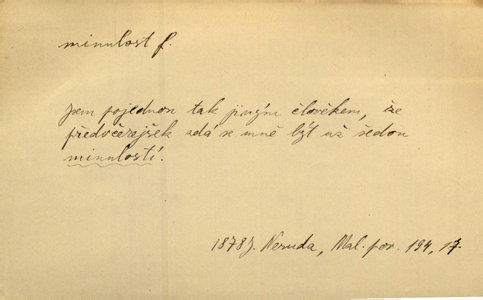 minulost f.
Jsem pojednou tak jiným člověkem, že
předvčerejšek zdá se mně být už šedou
minulostí.
1878 J. Neruda, Mal. pov. 194, 17.